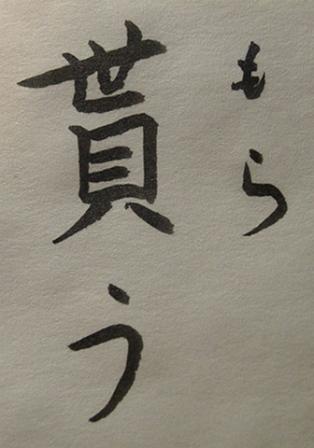 もら
貰う